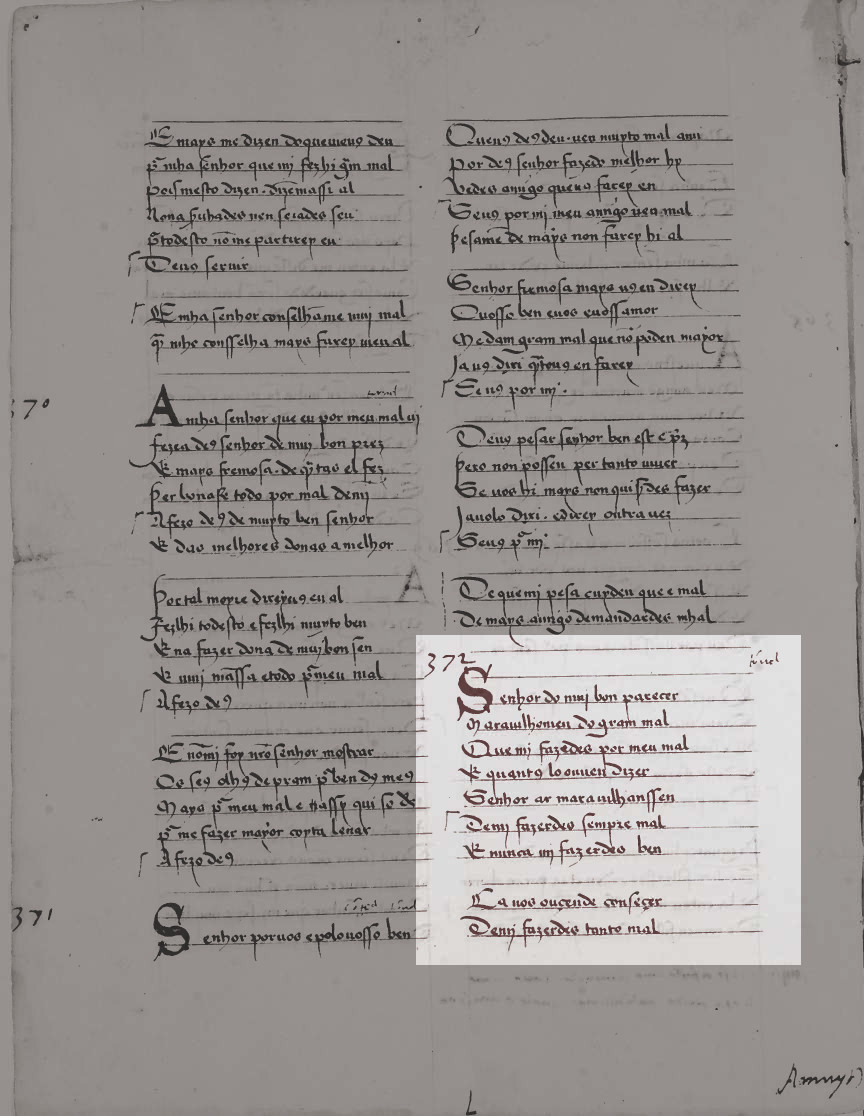 E mays me dizen do que me uos deu
pr̄ mha senhor que mi fez hi grā mal
pois mesto dizen dizemassi al
seu
en
Deuos seruir
E mha senhor conselhame muj mal
q̄ mhe consselha mays farey meu al
370
A mha senhor que eu por meu mal uj
fezea de9 senhor de muj bon prez
E mays fremosa de q̄tas el fez
todo por mal demj
A fezo de9 de muyto ben senhor
E das melhores donas a melhor
Por tal moyre direyuos en al
Fezlhi todesto e fezlhi muyto ben
E na fazer dona de muj bon sen
E muj māssa e todo pr̄ meu mal
A fezo de9
E nomi foy nrō senhor mostrar
Os se9 olh9 de pram pr̄ ben dos me9
Mays pr̄ meu mal e
pr̄ me fazer mayor coyta leuar
A fezo de9
371
Senhor por uos e polo uosso ben
Que u9 de9 deu uen muyto mal ami
Por de9 senhor fazede melhor hy
Vedes amigo que u9 farey en
Se u9 por mi meu amigo uen mal
Pesame de mays non farey hi al
Senhor fremosa mays u9 en direy
Vosso ben e uos e uossamor
Me dam gram mal que no poden mayor
Ja u9 dixi q̄ to u9 en farey
Se u9 por mj
Deu9 pesar senhor ben est e prz
Pero non possen per tanto uiuer
Se uos hi mays non quisrdes fazer
Ja uolo dixi e direy outra uez
Se u9 pr̄ mj
De que mi pesa cuyden que e mal
De mays amigo demandardes mhal
372
Senhor do muj bon parecer
Marauilhomen do gram mal
Que mi fazedes por meu mal
E quant9 lo ouuen dizer
Senhor ar marauilhanssen
Demj fazerdes sempre mal
E nunca mj fazerdes ben
Ca uos ouçende conseçer
Demj fazerdes tanto mal